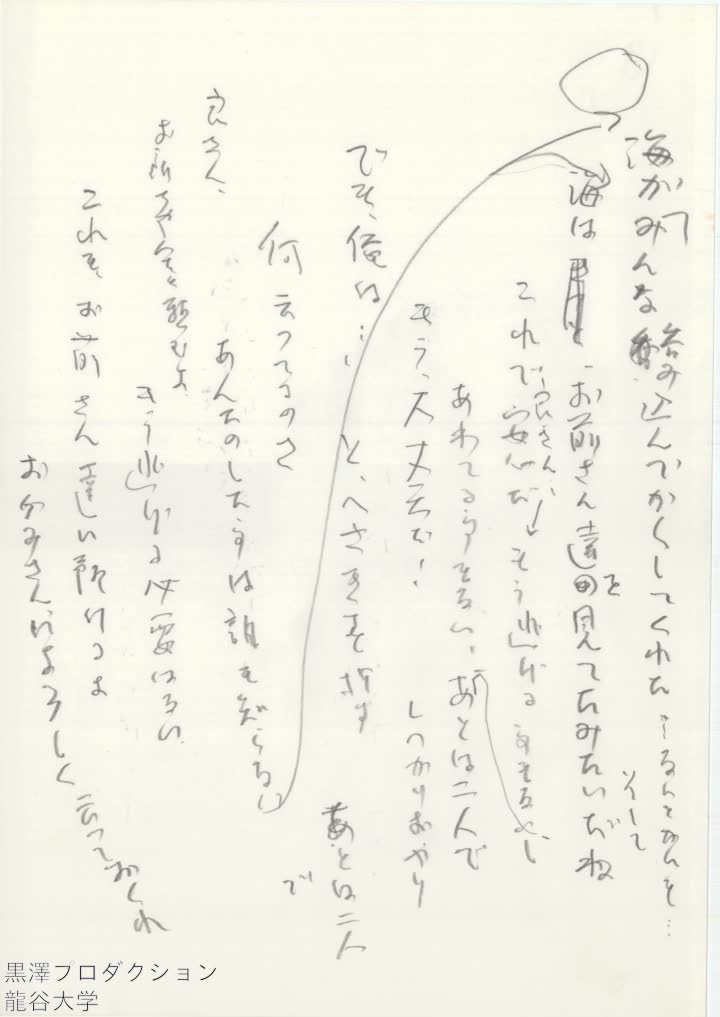 海がみんな
呑み込んでかくしてくれた
そして
海は
お前さん達を見てたみたいだね
良さん
これで安心だ
もう逃げる
あわてる事もない、あとは二人で
しっかりおやり
もう、大丈夫だ!
でも、俺は…
と、へさきを指す
あとは二人
で
何云ってるのさ
あんたのした事は誰も知らない
良さん、
お新さを頼むよ
もう逃げる必要はない
これも、お前さん達に預けるよ
お分みさんによろしく云っておくれ
黒澤プロダクション
龍谷大学